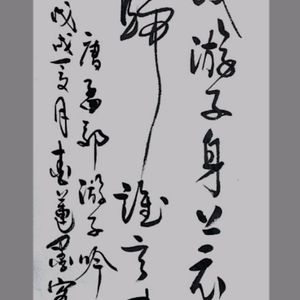 游子身上衣
歸誰言
唐孟郊游子吟
戊戌夏月書蓮墨客